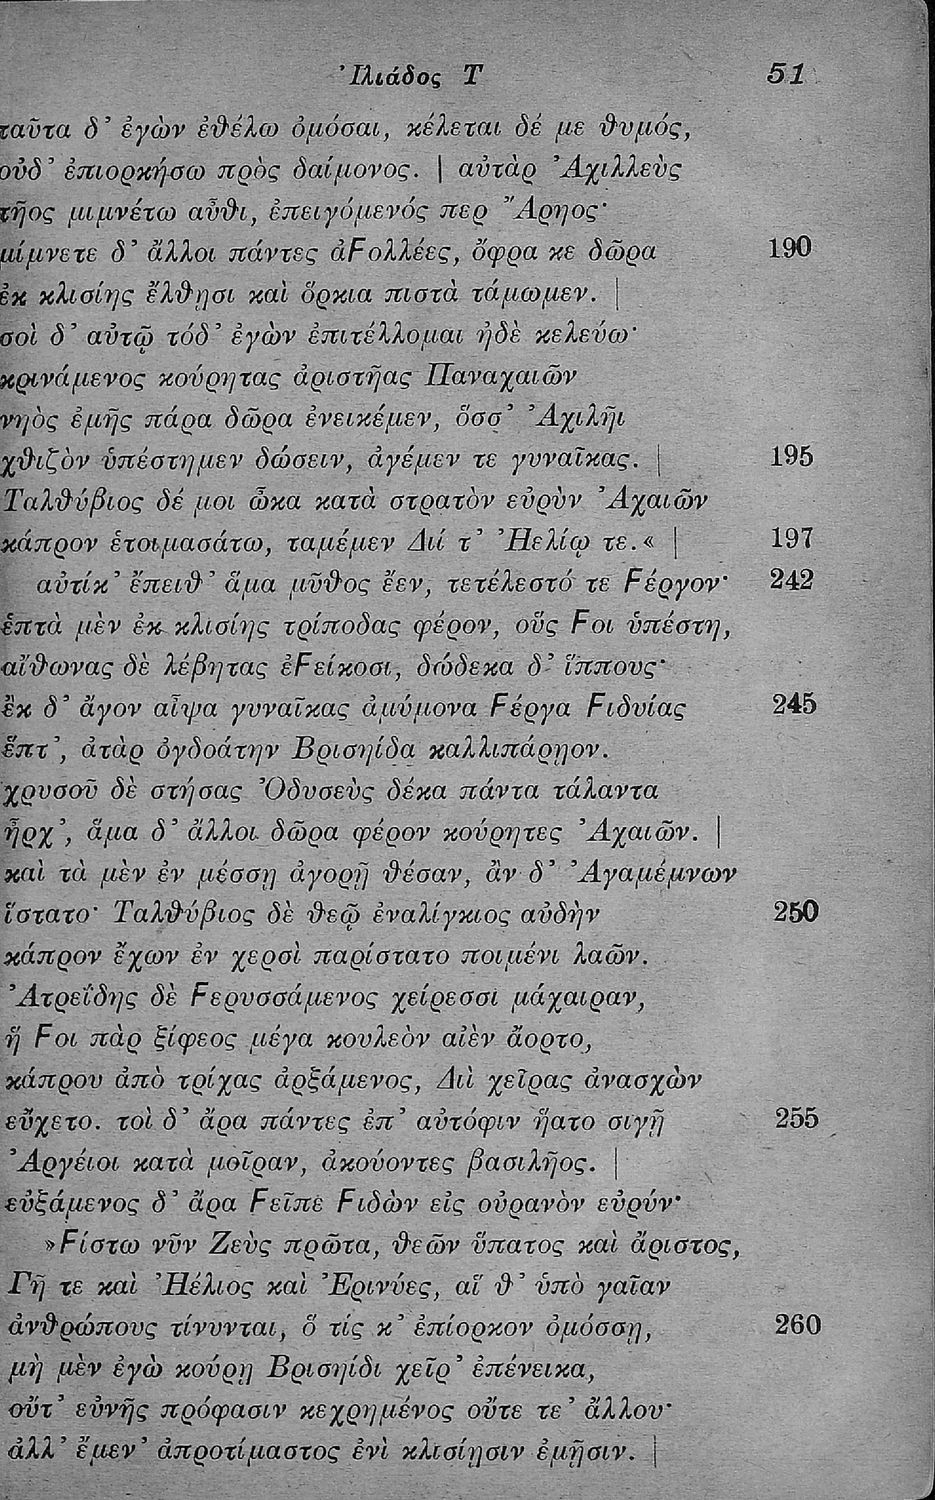 Ἰλιάδος Τ 51
ταῦτα δ’ ἐγὼν ἐθέλω ὀμόσαι, κέλεται δέ με θυμός,
οὐδ’ ἐπιορκήσω πρὸς δαίμονος. | αὐτὰρ Ἀχιλλεὺς
τῆος μιμνέτω αὖθι, ἐπειγόμενός περ Ἄρηος·
μίμνετε δ’ ἄλλοι πάντες ἀϝολλέες, ὄφρα κε δῶρα 190
ἐκ κλισίης ἔλθησι καὶ ὅρκια πιστὰ τάμωμεν. |
σοὶ δ’ αὐτῷ τόδ’ ἐγὼν ἐπιτέλλομαι ἠδὲ κελεύω·
κρινάμενος κούρητας ἀριστῆας Παναχαιῶν
νηὸς ἐμῆς πάρα δῶρα ἐνεικέμεν, ὅσσ’ Ἀχιλῆι
χθιζὸν ὑπέστημεν δώσειν, ἀγέμεν τε γυναῖκας. | 195
Ταλθύβιος δέ μοι ὦκα κατὰ στρατὸν εὐρὺν Ἀχαιῶν
κάπρον ἑτοιμασάτω, ταμέμεν Διί τ’ Ἠελίῳ τε.« | 197
αὐτίκ’ ἔπειθ’ ἅμα μῦθος ἔεν, τετέλεστό τε ϝέργον· 242
ἑπτὰ μὲν ἐκ κλισίης τρίποδας φέρον, οὕς ϝοι ὑπέστη,
αἴθωνας δὲ λέβητας ἐϝείκοσι, δώδεκα δ’ ἵππους·
ἐκ δ’ ἄγον αἶψα γυναῖκας ἀμύμονα ϝέργα ϝιδυίας 245
ἕπτ’, ἀτὰρ ὀγδοάτην Βρισηίδα καλλιπάρηον.
χρυσοῦ δὲ στήσας Ὀδυσεὺς δέκα πάντα τάλαντα
ἦρχ’, ἅμα δ’ ἄλλοι δῶρα φέρον κούρητες Ἀχαιῶν. |
καὶ τὰ μὲν ἐν μέσσῃ ἀγορῇ θέσαν, ἂν δ’ Ἀγαμέμνων
ἵστατο· Ταλθύβιος δὲ θεῷ ἐναλίγκιος αὐδὴν 250
κάπρον ἔχων ἐν χερσὶ παρίστατο ποιμένι λαῶν.
Ἀτρεΐδης δὲ ϝερυσσάμενος χείρεσσι μάχαιραν,
ἥ ϝοι πὰρ ξίφεος μέγα κουλεὸν αἰὲν ἄορτο,
κάπρου ἀπὸ τρίχας ἀρξάμενος, Διὶ χεῖρας ἀνασχὼν
εὔχετο. τοὶ δ’ ἄρα πάντες ἐπ’ αὐτόφιν ἥατο σιγῇ 255
Ἀργέιοι κατὰ μοῖραν, ἀκούοντες βασιλῆος. |
εὐξάμενος δ’ ἄρα ϝεῖπε ϝιδὼν εἰς οὐρανὸν εὐρύν·
»ϝίστω νῦν Ζεὺς πρῶτα, θεῶν ὕπατος καὶ ἄριστος,
Γῆ τε καὶ Ἠέλιος καὶ Ἐρινύες, αἵ θ’ ὑπὸ γαῖαν
ἀνθρώπους τίνυνται, ὅ τίς κ’ ἐπίορκον ὀμόσσῃ, 260
μὴ μὲν ἐγὼ κούρῃ Βρισηίδι χεῖρ’ ἐπένεικα,
οὔτ’ εὐνῆς πρόφασιν κεχρημένος οὔτε τε’ ἄλλου·
ἀλλ’ ἔμεν’ ἀπροτίμαστος ἐνὶ κλισίῃσιν ἐμῇσιν. |